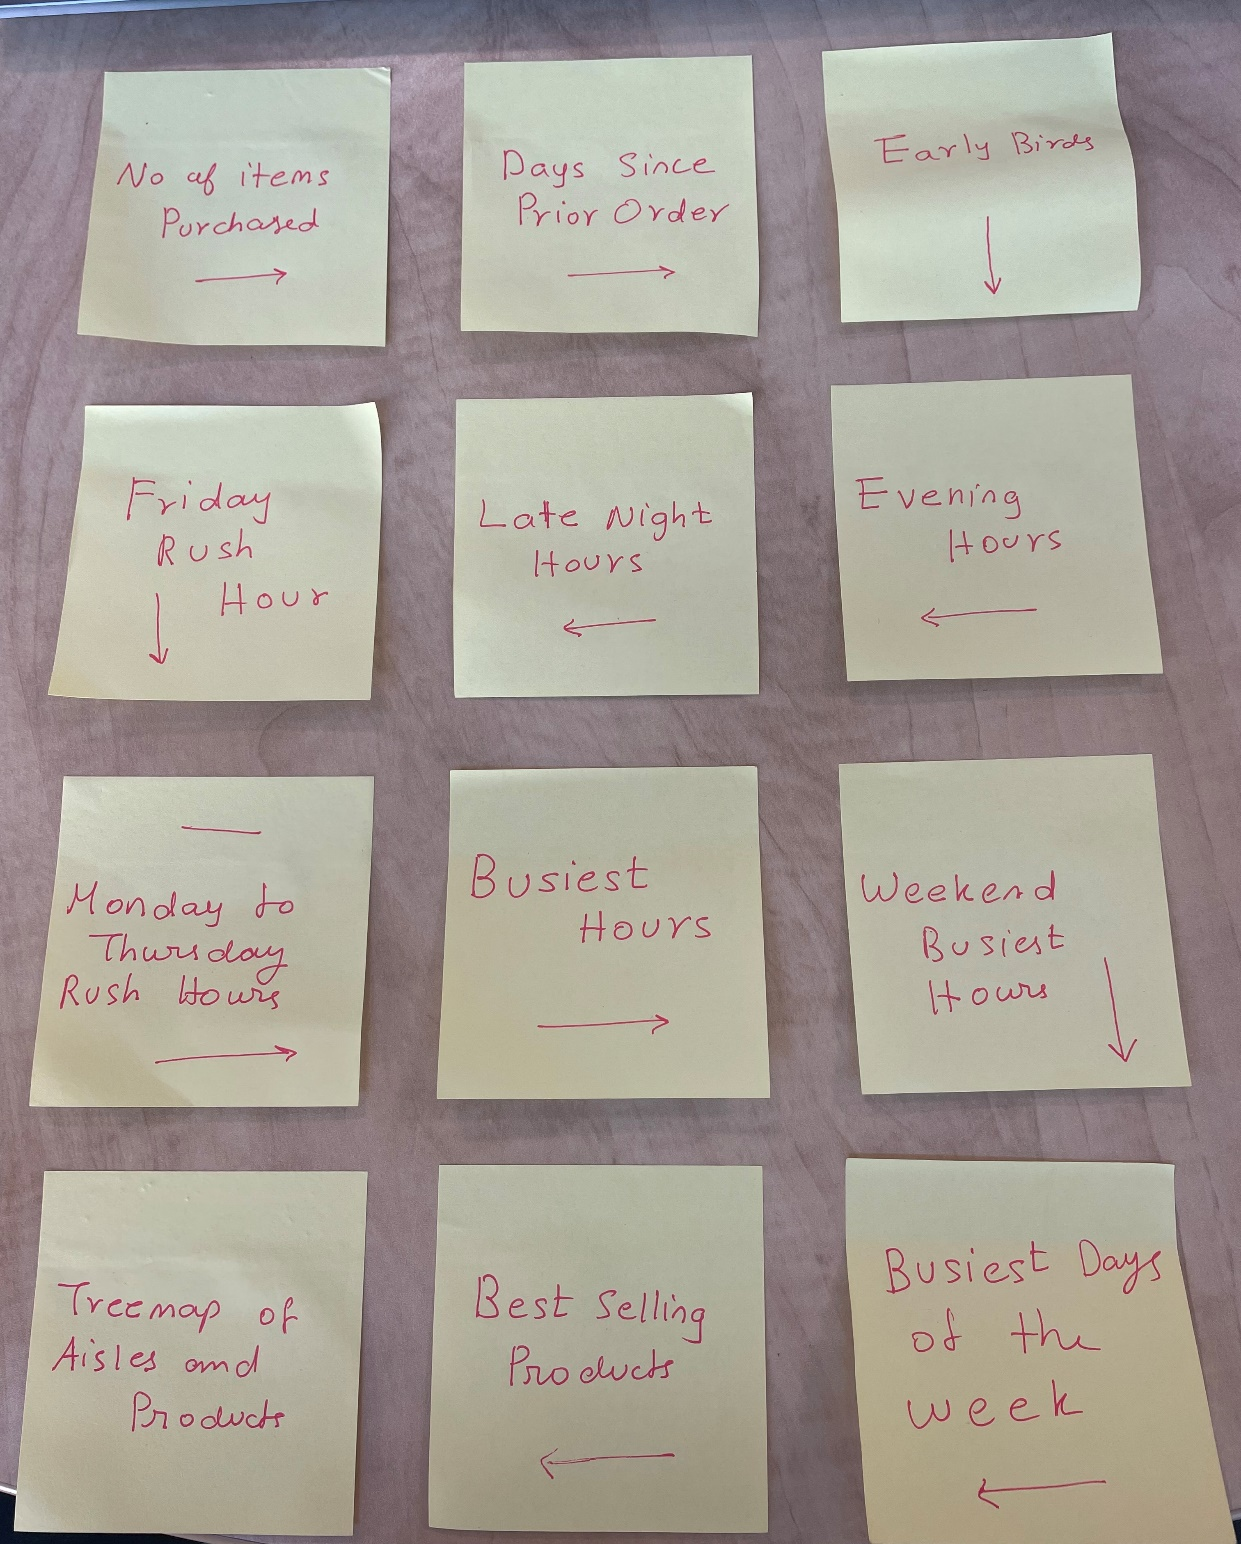 No of items
Purchased
Days Since
Prior Order
Early Birds
Friday
Rush
Hour
Late Night
Hours
Evening
Hours
Monday to
Thursday
Rush Hours
Busiest
Hours
Weekend
Busiest
Hours
Treemap of
Aisles and
Products
Best Selling
Products
Busiest Days
of the
week